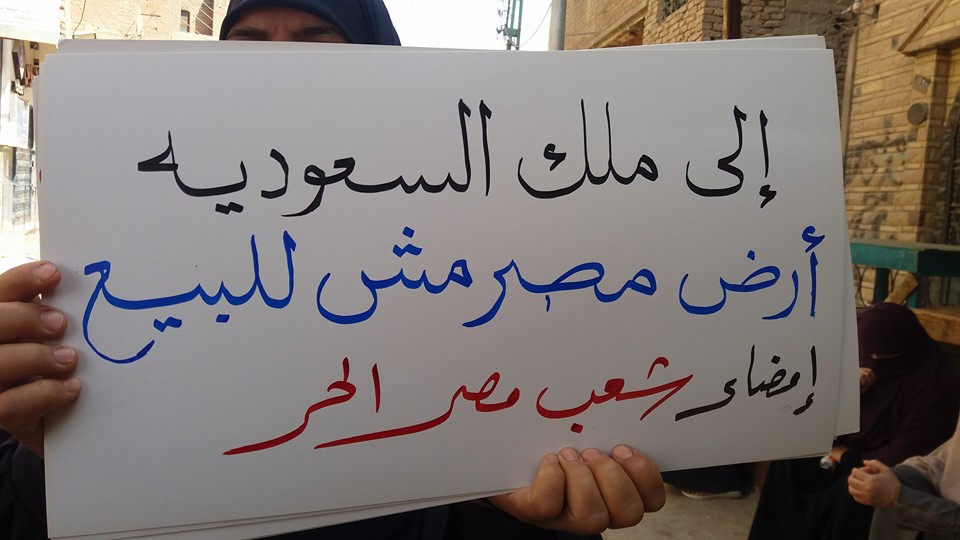 إلى ملك السعوديه
أرض مصر مش للبيع
إمضاء شعب مصر الحر